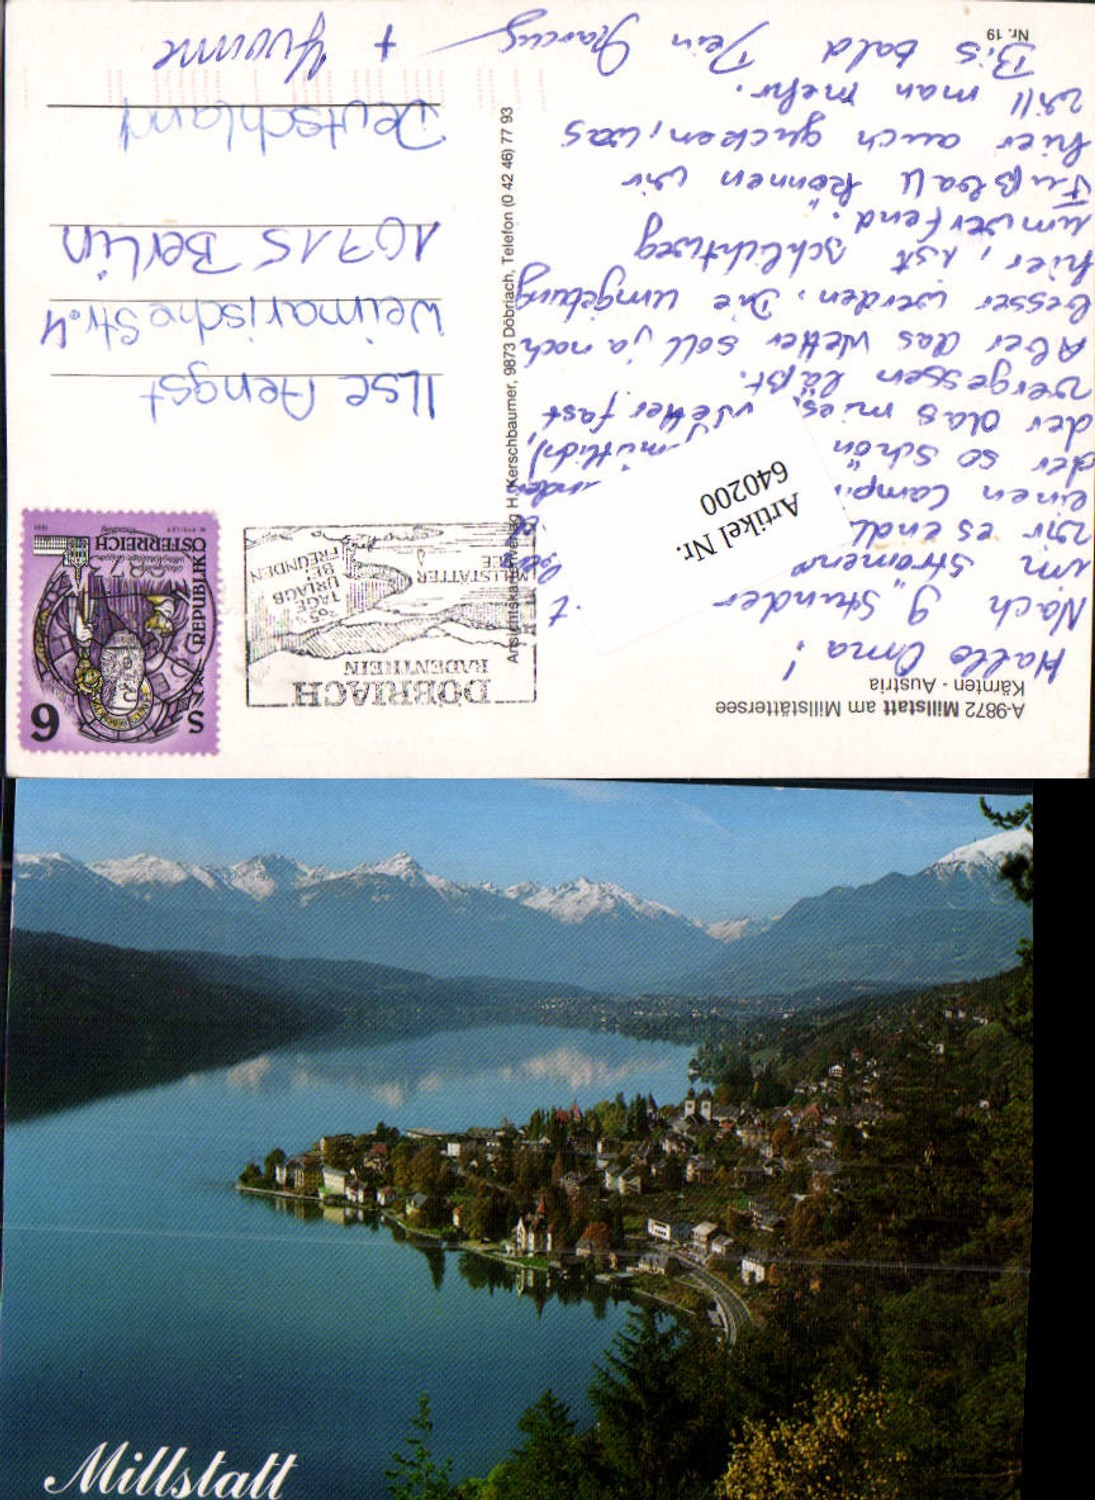 A-9872 Millstatt am Millstättersee
Kärnten - Austria
Hallo Oma!
Nach 9 Stunden
im strömend
wir es endl
einen Campi
der so schön
der das mies Wetter fast
vergessen läßt.
Aber das Wetter soll ja noch
besser werden. Die Umgebung
hier, ist schlichtweg
"umwerfend."
Fußball können wir
hier auch gucken, was
will man mehr.
Bis bald Dein Marcus
+ Yvonne
Nr. 19
Artikel Nr.
640200
Ansichtskartenverlag H. Kerschbaumer, 9873 Döbriach, Telefon (0 42 46) 77 93
DÖBRIACH
RADENTHEIN
65
TAGE
URLAUB
BEI
FREUNDEN
MILLSTÄTTER
SEE
S 6
REPUBLIK
ÖSTERREICH
Ilse Hengst
Weimarische Str. 4
10715 Berlin
Deutschland
Millstatt